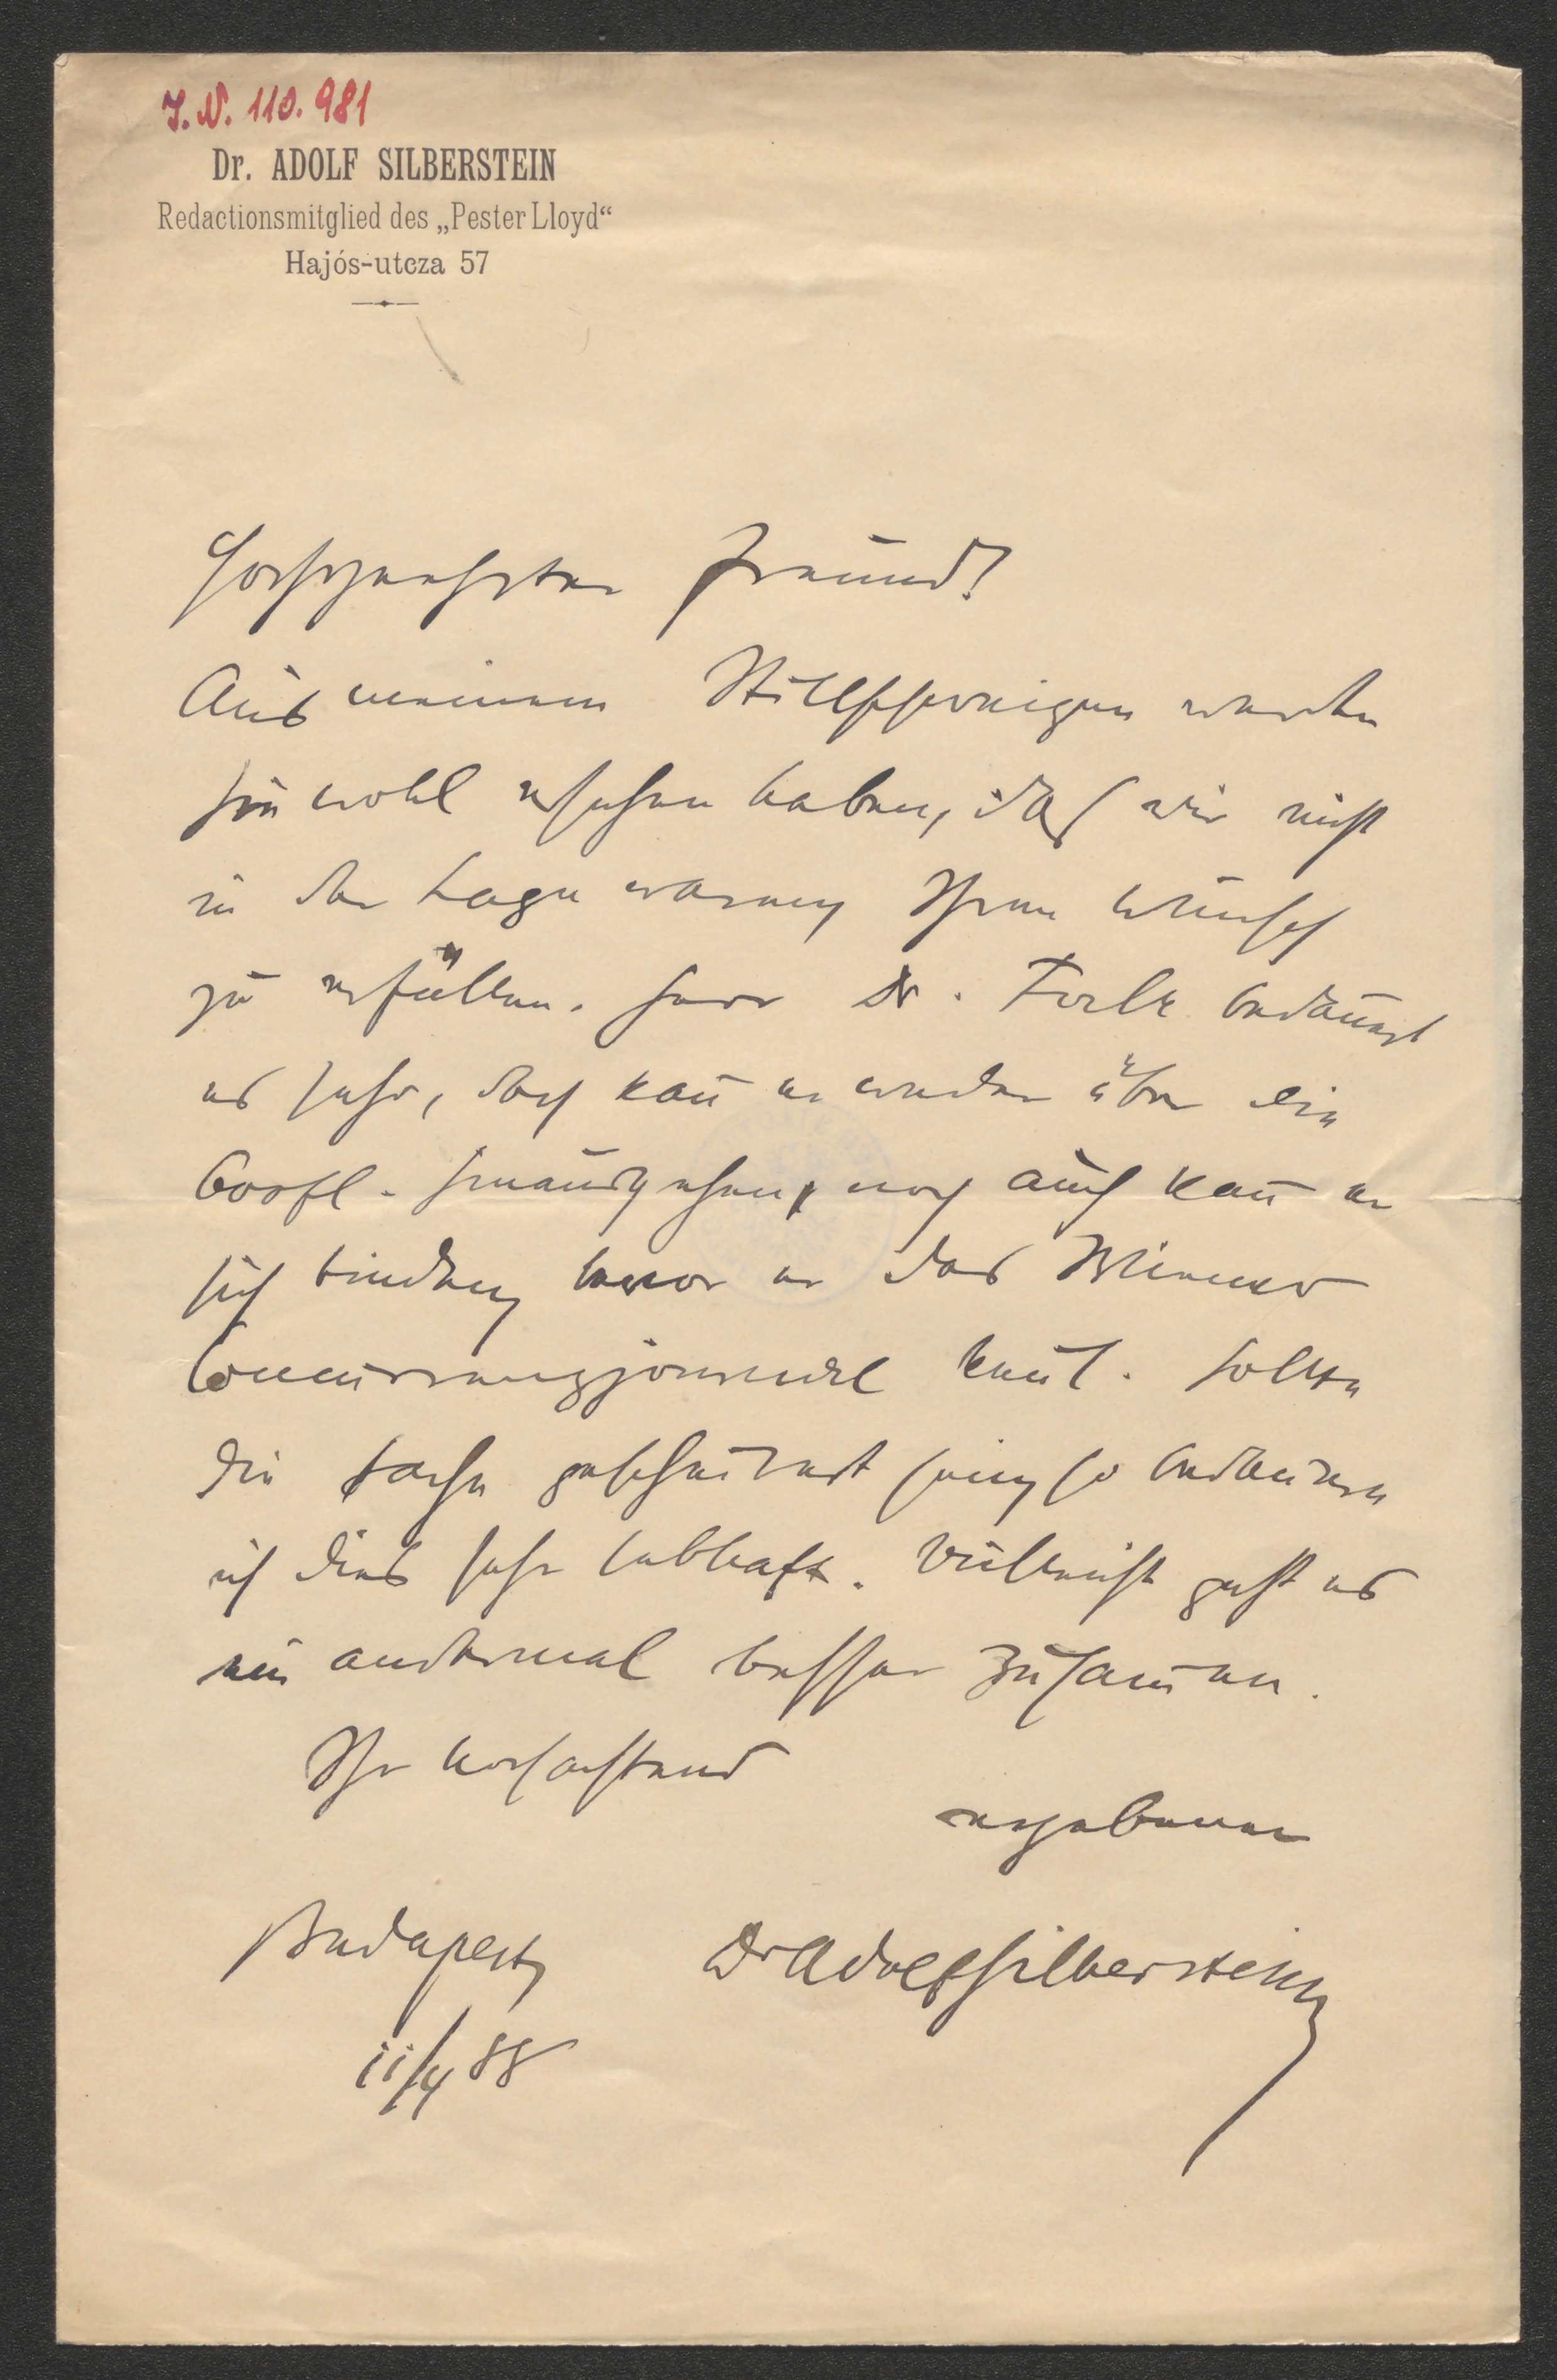 I.N. 110.981
Dr. ADOLF SILBERSTEIN
Redactionsmitglied des „Pester Lloyd“
Hajós-utcza 57
Hochgeehrter Freund!
Aus meinem Stillschweigen werden
Sie wohl ersehen haben, daß wir nicht
in der Lage waren Ihren Wunsch
zu erfüllen. Herr Dr. Falk bedauert
es sehr, doch kan̅ er weder über die
hinausgehen, noch auch kan̅ er
sich binden bevor er das Wiener
Concurrenzjournal ken̅t. Sollte
die Sache gescheitert sein, so bedauere
ich dies sehr lebhaft. Vielleicht geht es
ein andermal besser zusam̅en.
Ihr hochachtend
ergebener
Budapest,
Dr Adolf Silberstein
11/4 88